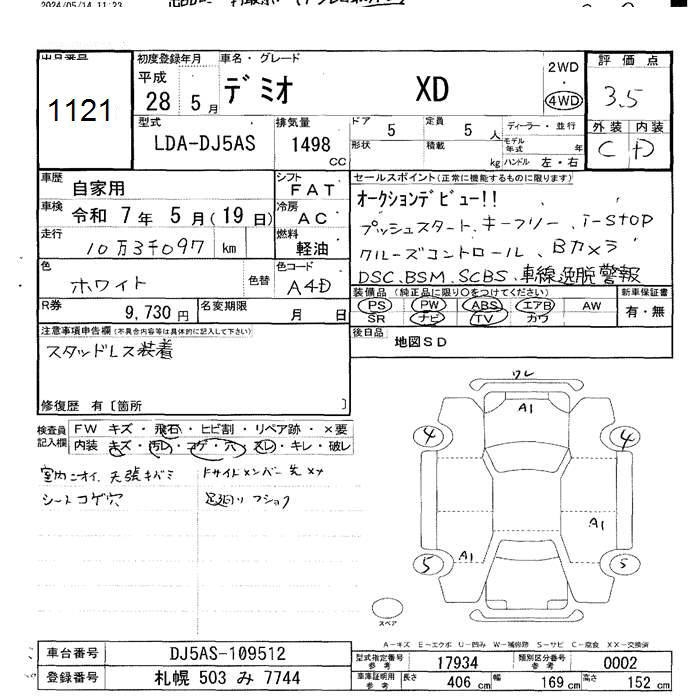 2024/05/14 11:23
出品番号
1121
初度登録年月
平成
28 5月
車名・グレード
デミオ XD
2WD
・
4WD
評価点
3.5
型式
LDA-DJ5AS
排気量
1498
CC
ドア
5
定員
5人
形状
積載
kg
ディーラー・並行
モデル年式 年
ハンドル 左・右
外装 内装
C D
車歴
自家用
シフト
FAT
セールスポイント(正常に機能するものに限ります)
オークションデビュー!!
プッシュスタート、キーフリー、i-stop
クルーズコントロール、Bカメラ
DSC、BSM、SCBS、車線逸脱警報
車検
令和 7年 5月(19日)
冷房
AC
走行
10万3千097 km
燃料
軽油
色
ホワイト
色替
色コード
A4D
装備品(純正品に限り〇をつけてください)
PS PW ABS エアB AW
SR ナビ TV カワ
新車保証書
有・無
R券
9,730円
名変期限
月 日
後日品
地図SD
注意事項申告欄(不具合内容等は具体的に記入して下さい)
スタッドレス装着
修復歴 有〔箇所 〕
検査員記入欄
FW キズ・飛石・ヒビ割・リペア跡・×要
内装・キズ・汚レ・コゲ・穴・スレ・キレ・破レ
室内ニオイ、天張キバミ
シートコゲ穴
足廻り
ワレ
A1
4
4
A1
A1
5
5
スペア
A-キズ E-エクボ U-凹み W-補修跡 S-サビ C-腐食 XX-交換済
車台番号
DJ5AS-109512
登録番号
札幌 503 み 7744
型式指定番号参考
17934
類別区分番号参考
0002
車庫証明用参考
長さ 406 cm
幅 169 cm
高さ 152 cm